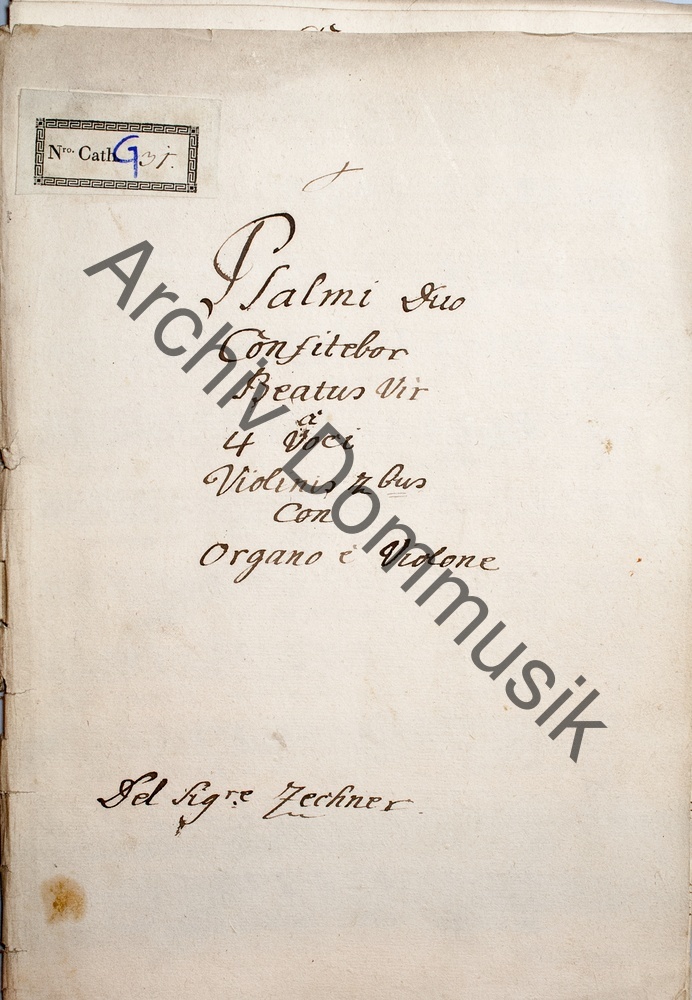 Nro. Cath. G 31.
Psalmi Duo
Confitebor
Beatus Vir
à
4 Voci
Violinis 2bus
Con
Organo è Violone
Del Sigre Zechner.
Archiv Dommusik